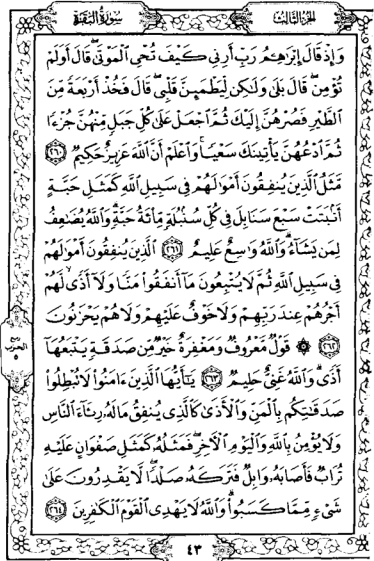 سورة البقرة
الجزء الثالث
وَإِذْ قَالَ إِبْرَٰهِـۧمُ رَبِّ أَرِنِي كَيْفَ تُحْيِ ٱلْمَوْتَىٰ قَالَ أَوَلَمْ
تُؤْمِن قَالَ بَلَىٰ وَلَٰكِن لِّيَطْمَئِنَّ قَلْبِي قَالَ فَخُذْ أَرْبَعَةً مِّنَ
ٱلطَّيْرِ فَصُرْهُنَّ إِلَيْكَ ثُمَّ ٱجْعَلْ عَلَىٰ كُلِّ جَبَلٍ مِّنْهُنَّ جُزْءًا
ثُمَّ ٱدْعُهُنَّ يَأْتِينَكَ سَعْيًا وَٱعْلَمْ أَنَّ ٱللَّهَ عَزِيزٌ حَكِيمٌ ٢٦٠
مَّثَلُ ٱلَّذِينَ يُنفِقُونَ أَمْوَٰلَهُمْ فِي سَبِيلِ ٱللَّهِ كَمَثَلِ حَبَّةٍ
أَنۢبَتَتْ سَبْعَ سَنَابِلَ فِي كُلِّ سُنۢبُلَةٍ مِّا۟ئَةُ حَبَّةٍ وَٱللَّهُ يُضَٰعِفُ
لِمَن يَشَآءُ وَٱللَّهُ وَٰسِعٌ عَلِيمٌ ٢٦١ ٱلَّذِينَ يُنفِقُونَ أَمْوَٰلَهُمْ
فِي سَبِيلِ ٱللَّهِ ثُمَّ لَا يُتْبِعُونَ مَآ أَنفَقُوا۟ مَنًّا وَلَآ أَذًى لَّهُمْ
أَجْرُهُمْ عِندَ رَبِّهِمْ وَلَا خَوْفٌ عَلَيْهِمْ وَلَا هُمْ يَحْزَنُونَ
٢٦٢ ۞ قَوْلٌ مَّعْرُوفٌ وَمَغْفِرَةٌ خَيْرٌ مِّن صَدَقَةٍ يَتْبَعُهَآ
أَذًى وَٱللَّهُ غَنِيٌّ حَلِيمٌ ٢٦٣ يَٰٓأَيُّهَا ٱلَّذِينَ ءَامَنُوا۟ لَا تُبْطِلُوا۟
صَدَقَٰتِكُم بِٱلْمَنِّ وَٱلْأَذَىٰ كَٱلَّذِي يُنفِقُ مَالَهُۥ رِئَآءَ ٱلنَّاسِ
وَلَا يُؤْمِنُ بِٱللَّهِ وَٱلْيَوْمِ ٱلْءَاخِرِ فَمَثَلُهُۥ كَمَثَلِ صَفْوَانٍ عَلَيْهِ
تُرَابٌ فَأَصَابَهُۥ وَابِلٌ فَتَرَكَهُۥ صَلْدًا لَّا يَقْدِرُونَ عَلَىٰ
شَيْءٍ مِّمَّا كَسَبُوا۟ وَٱللَّهُ لَا يَهْدِي ٱلْقَوْمَ ٱلْكَٰفِرِينَ ٢٦٤
٤٣